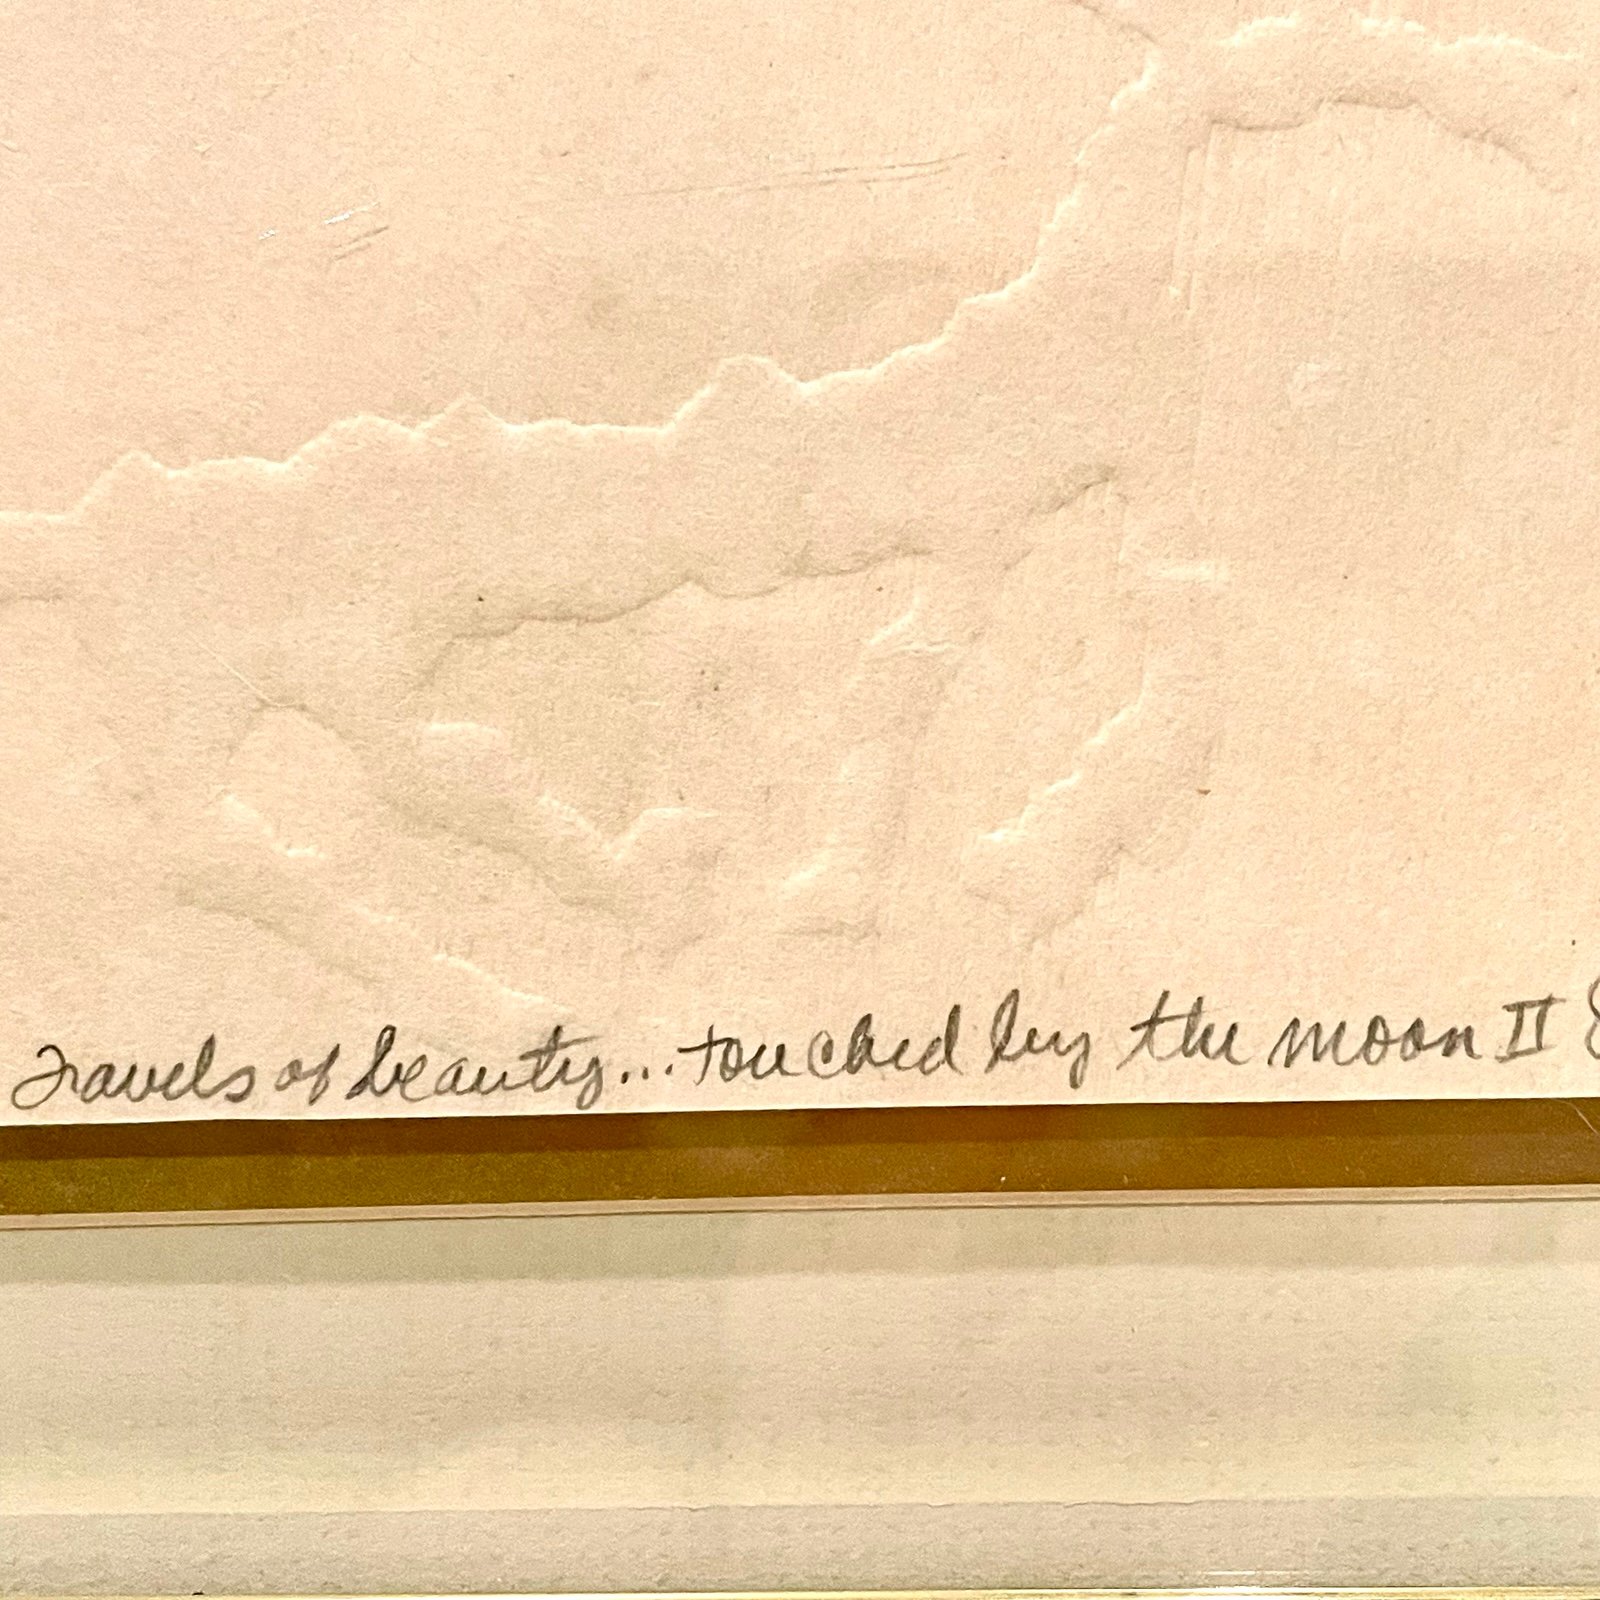 Travels of beauty...touched by the moon II